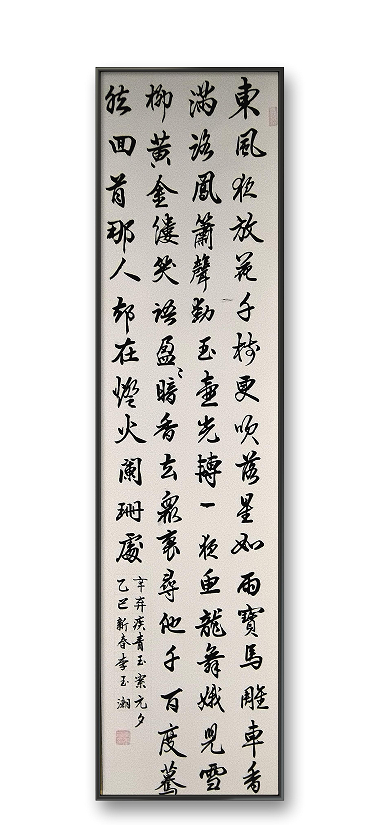 東風夜放花千樹更吹落星如雨寶馬雕車香
滿路鳳簫聲動玉壺光轉一夜魚龍舞娥兒雪
柳黃金縷笑語盈〻暗香去眾裏尋他千百度驀
然回首那人却在燈火闌珊處
辛弃疾青玉案元夕
乙巳新春李玉